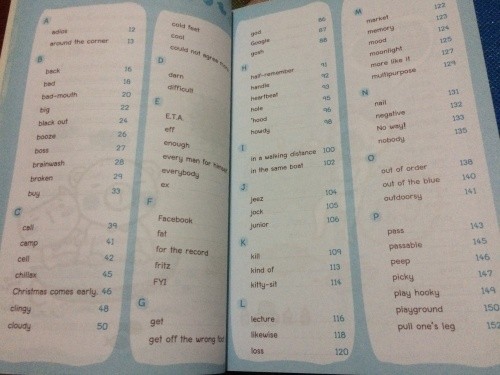 A
adios 12
around the corner 13
B
back 16
bad 18
bad-mouth 20
big 22
black out 24
booze 26
boss 27
brainwash 28
broken 29
buy 33
C
call 39
camp 41
cell 42
chillax 45
Christmas comes early 46
clingy 48
cloudy 50
cold feet
cool
could not agree more
D
darn
difficult
E
E.T.A.
eff
enough
every man for himself
everybody
ex
F
Facebook
fat
for the record
fritz
FYI
G
get
get off the wrong foot
god 86
Google 87
gosh 88
H
half-remember 91
handle 92
heartbeat 93
hole 95
'hood 96
howdy 98
I
in a walking distance 100
in the same boat 102
J
jeez 104
jock 105
junior 106
K
kill 109
kind of 113
kitty-sit 114
L
lecture 116
likewise 118
loss 120
M
market 122
memory 123
mood 124
moonlight 125
more like it 127
multipurpose 129
N
nail 131
negative 132
No way! 133
nobody 135
O
out of order 138
out of the blue 140
outdoorsy 141
P
pass 143
passable 145
peep 146
picky 147
play hooky 149
playground 150
pull one's leg 152